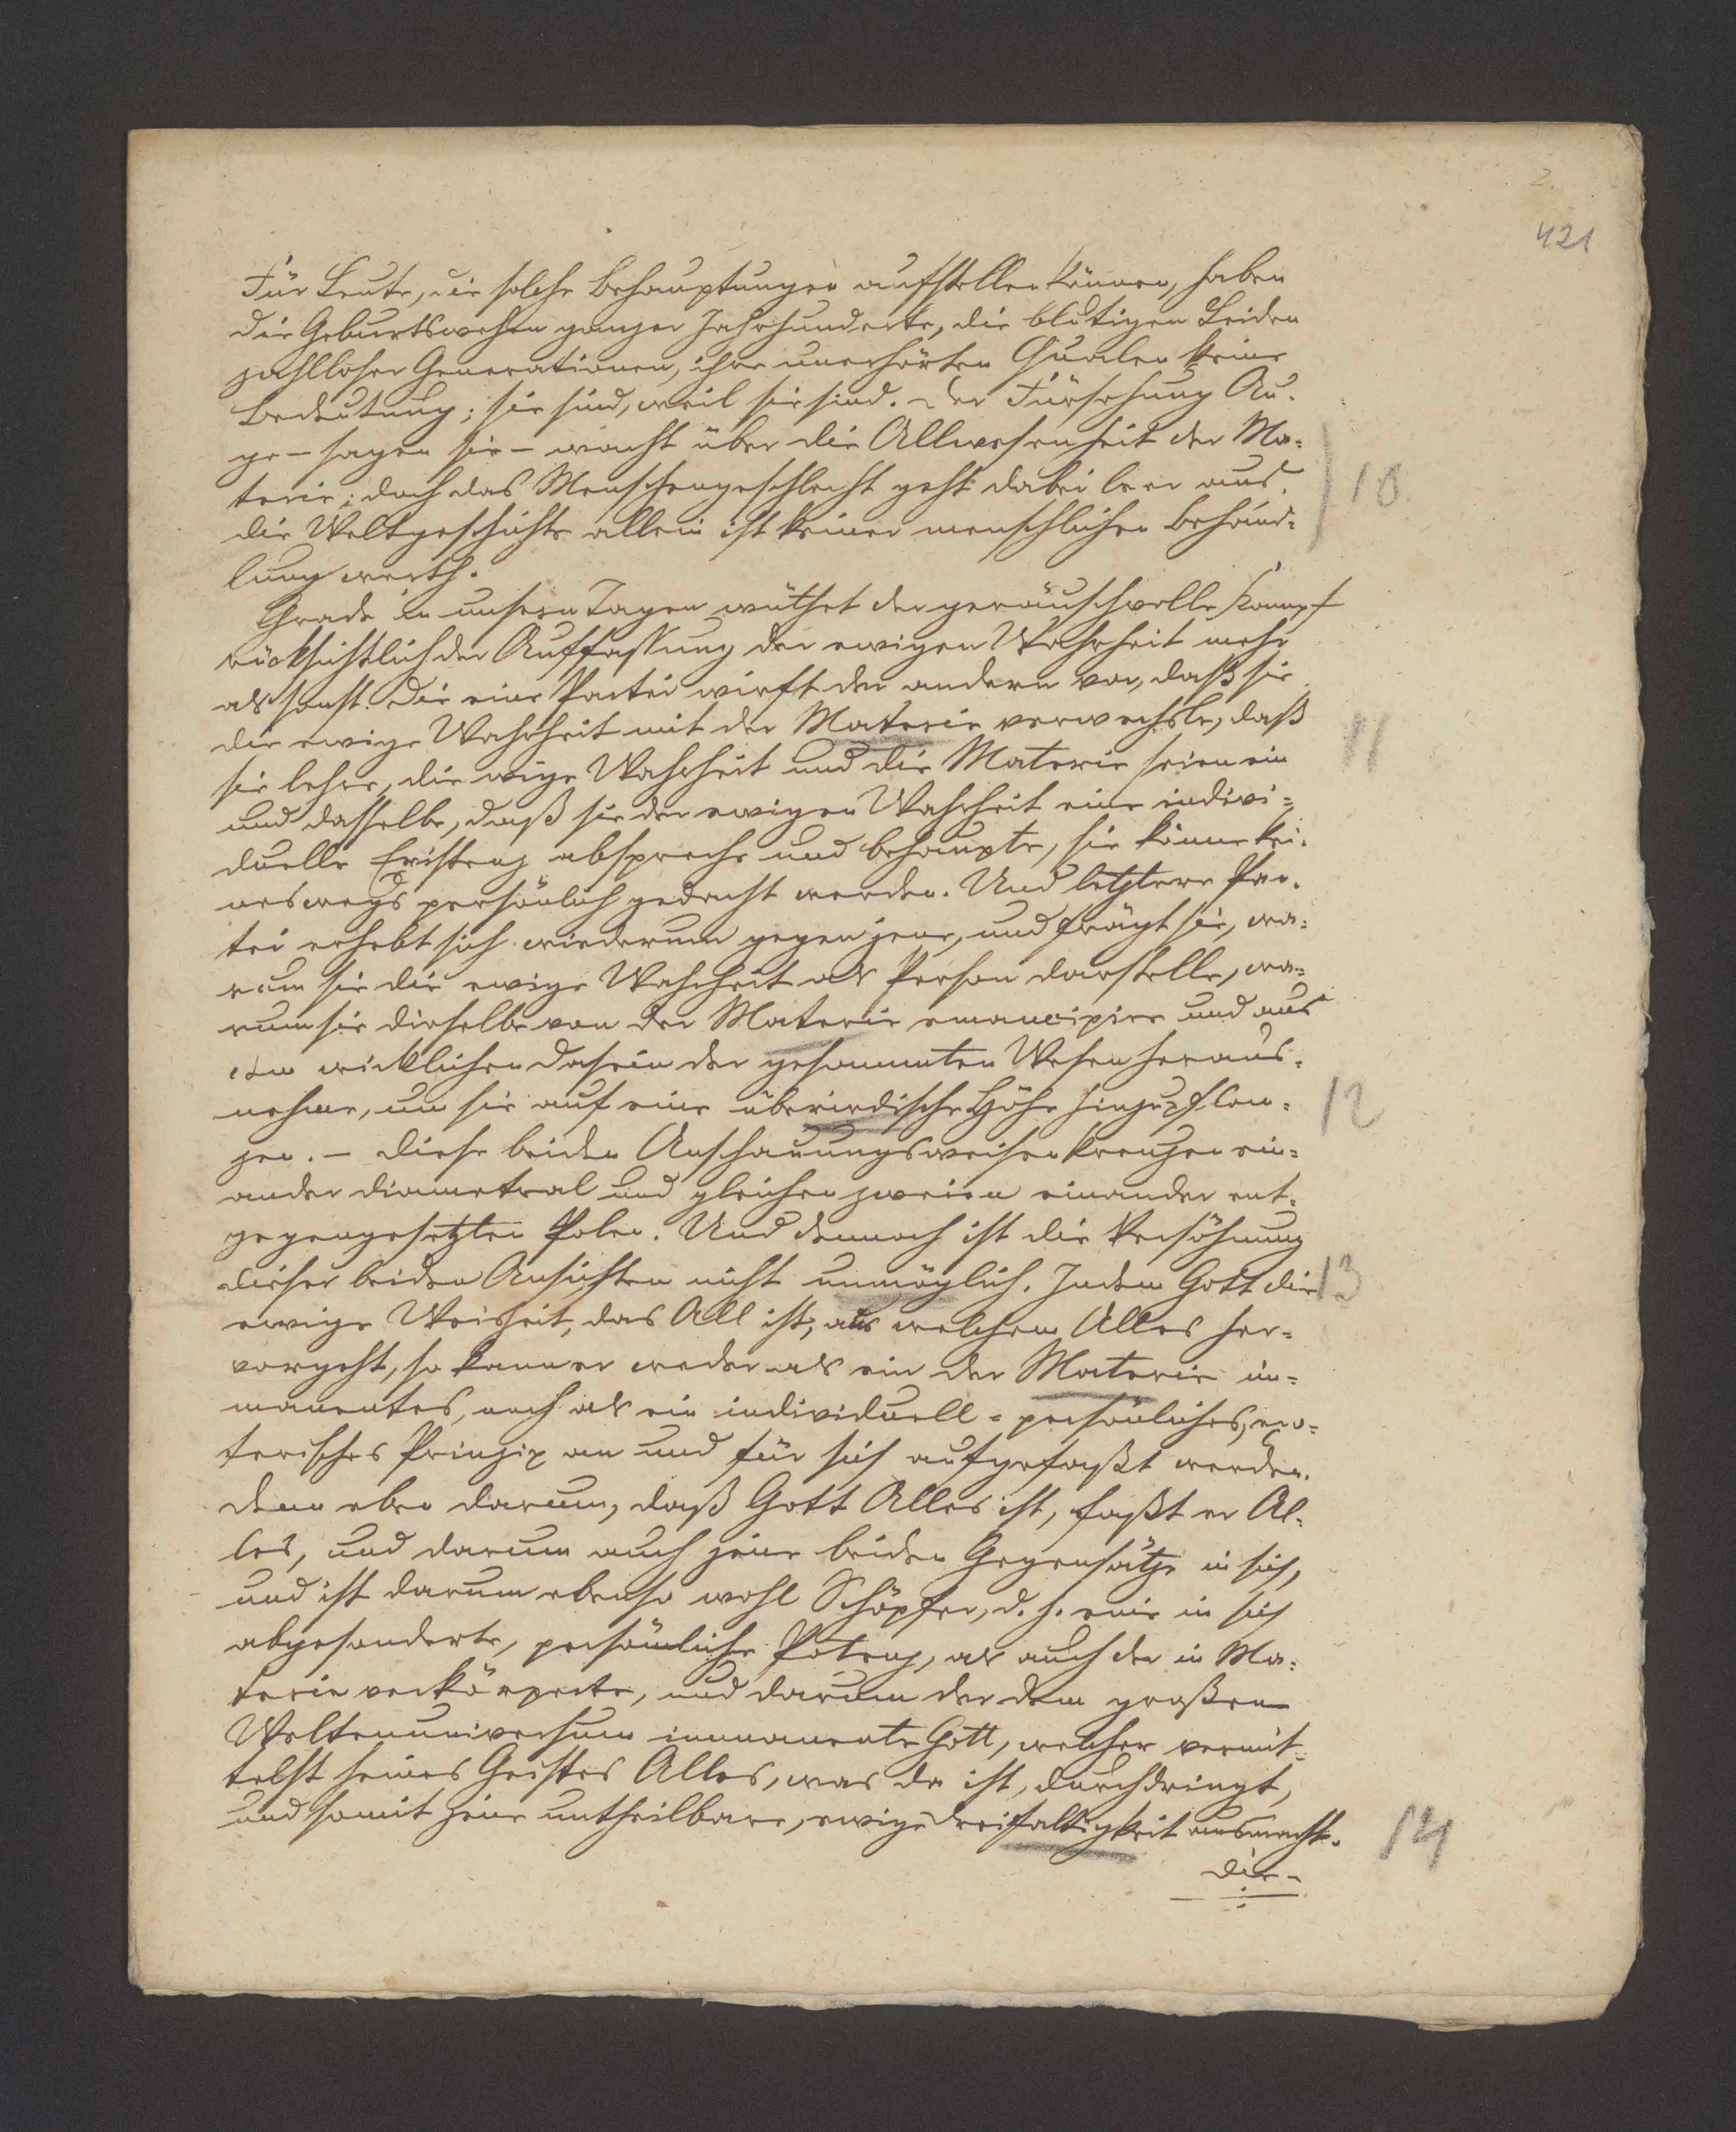 2.
421
Für Leute, die solche Behauptungen aufstellen können, haben
die Geburtswehen ganzer Jahrhunderte, die blutigen Leiden
zahlloser Generationen, ihre unerhörten Qualen keine
Bedeutung; sie sind, weil sie sind. Der Fürsehung Au-
ge – sagen sie – wacht über die Allwesenheit der Ma-
terie; doch das Menschengeschlecht geht dabei leer aus. 10.
die Weltgeschichte allein ist keiner menschlichen Behand-
lung werth.
Grade in unsern Tagen wüthet der geräuschvolle Kampf
rücksichtlich der Auffassung der ewigen Wahrheit mehr
als sonst. Die eine Partei wirft der andern vor, daß sie
die ewige Wahrheit mit der Materie verwechsle, daß 11
sie lehre, die ewige Wahrheit und die Materie seien ein
und dasselbe, daß sie der ewigen Wahrheit eine indivi-
duelle Existenz abspreche und behaupte, sie könne kei-
neswegs persönlich gedacht werden. Und letztere Par-
tei erhebt sich wiederum gegen jene, und frägt sie, wa-
rum sie die ewige Wahrheit als Person darstelle, wa-
rum sie dieselbe von der Materie emancipire und aus
dem wirklichen Dasein der gesammten Wesen heraus-
nehme, um sie auf eine überirdische Höhe hinzupflan- 12
zen. – Diese beiden Anschauungsweisen kreuzen ein-
ander diametral und gleichen zweien einander ent-
gegengesetzten Polen. Und dennoch ist die Versöhnung
dieser beiden Ansichten nicht unmöglich. Indem Gott die 13
ewige Weisheit, das All ist, aus welchem Alles her-
vorgeht, so kann er weder als ein der Materie im-
manentes, noch als ein individuell-persönliches, exo-
terisches Prinzip an und für sich aufgefaßt werden.
Denn eben darum, daß Gott Alles ist, faßt er Al-
les, und darum auch jene beiden Gegensätze in sich,
und ist darum ebenso wohl Schöpfer, d. h. eine in sich
abgesonderte, persönliche Potenz, als auch der in Ma-
terie verkörperte, und darum der dem großen
Weltenuniversum immanente Gott, welcher vermit-
telst seines Geistes Alles, was da ist, durchdringt,
und somit jene untheilbare, ewige Dreifaltigkeit ausmacht. 14
Die-